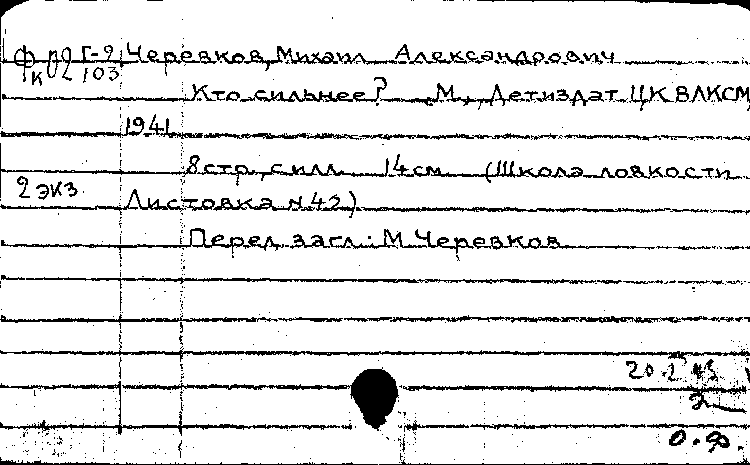 Г-9 Черевков, Михаил Александрович
103
Кто сильнее? М., Детиздат ЦК ВЛКСМ,
1941
8 стр., с илл. 14 см (Школа ловкости
2 экз Листовка №42)
Перед загл.: М. Черевков
О.Ф.